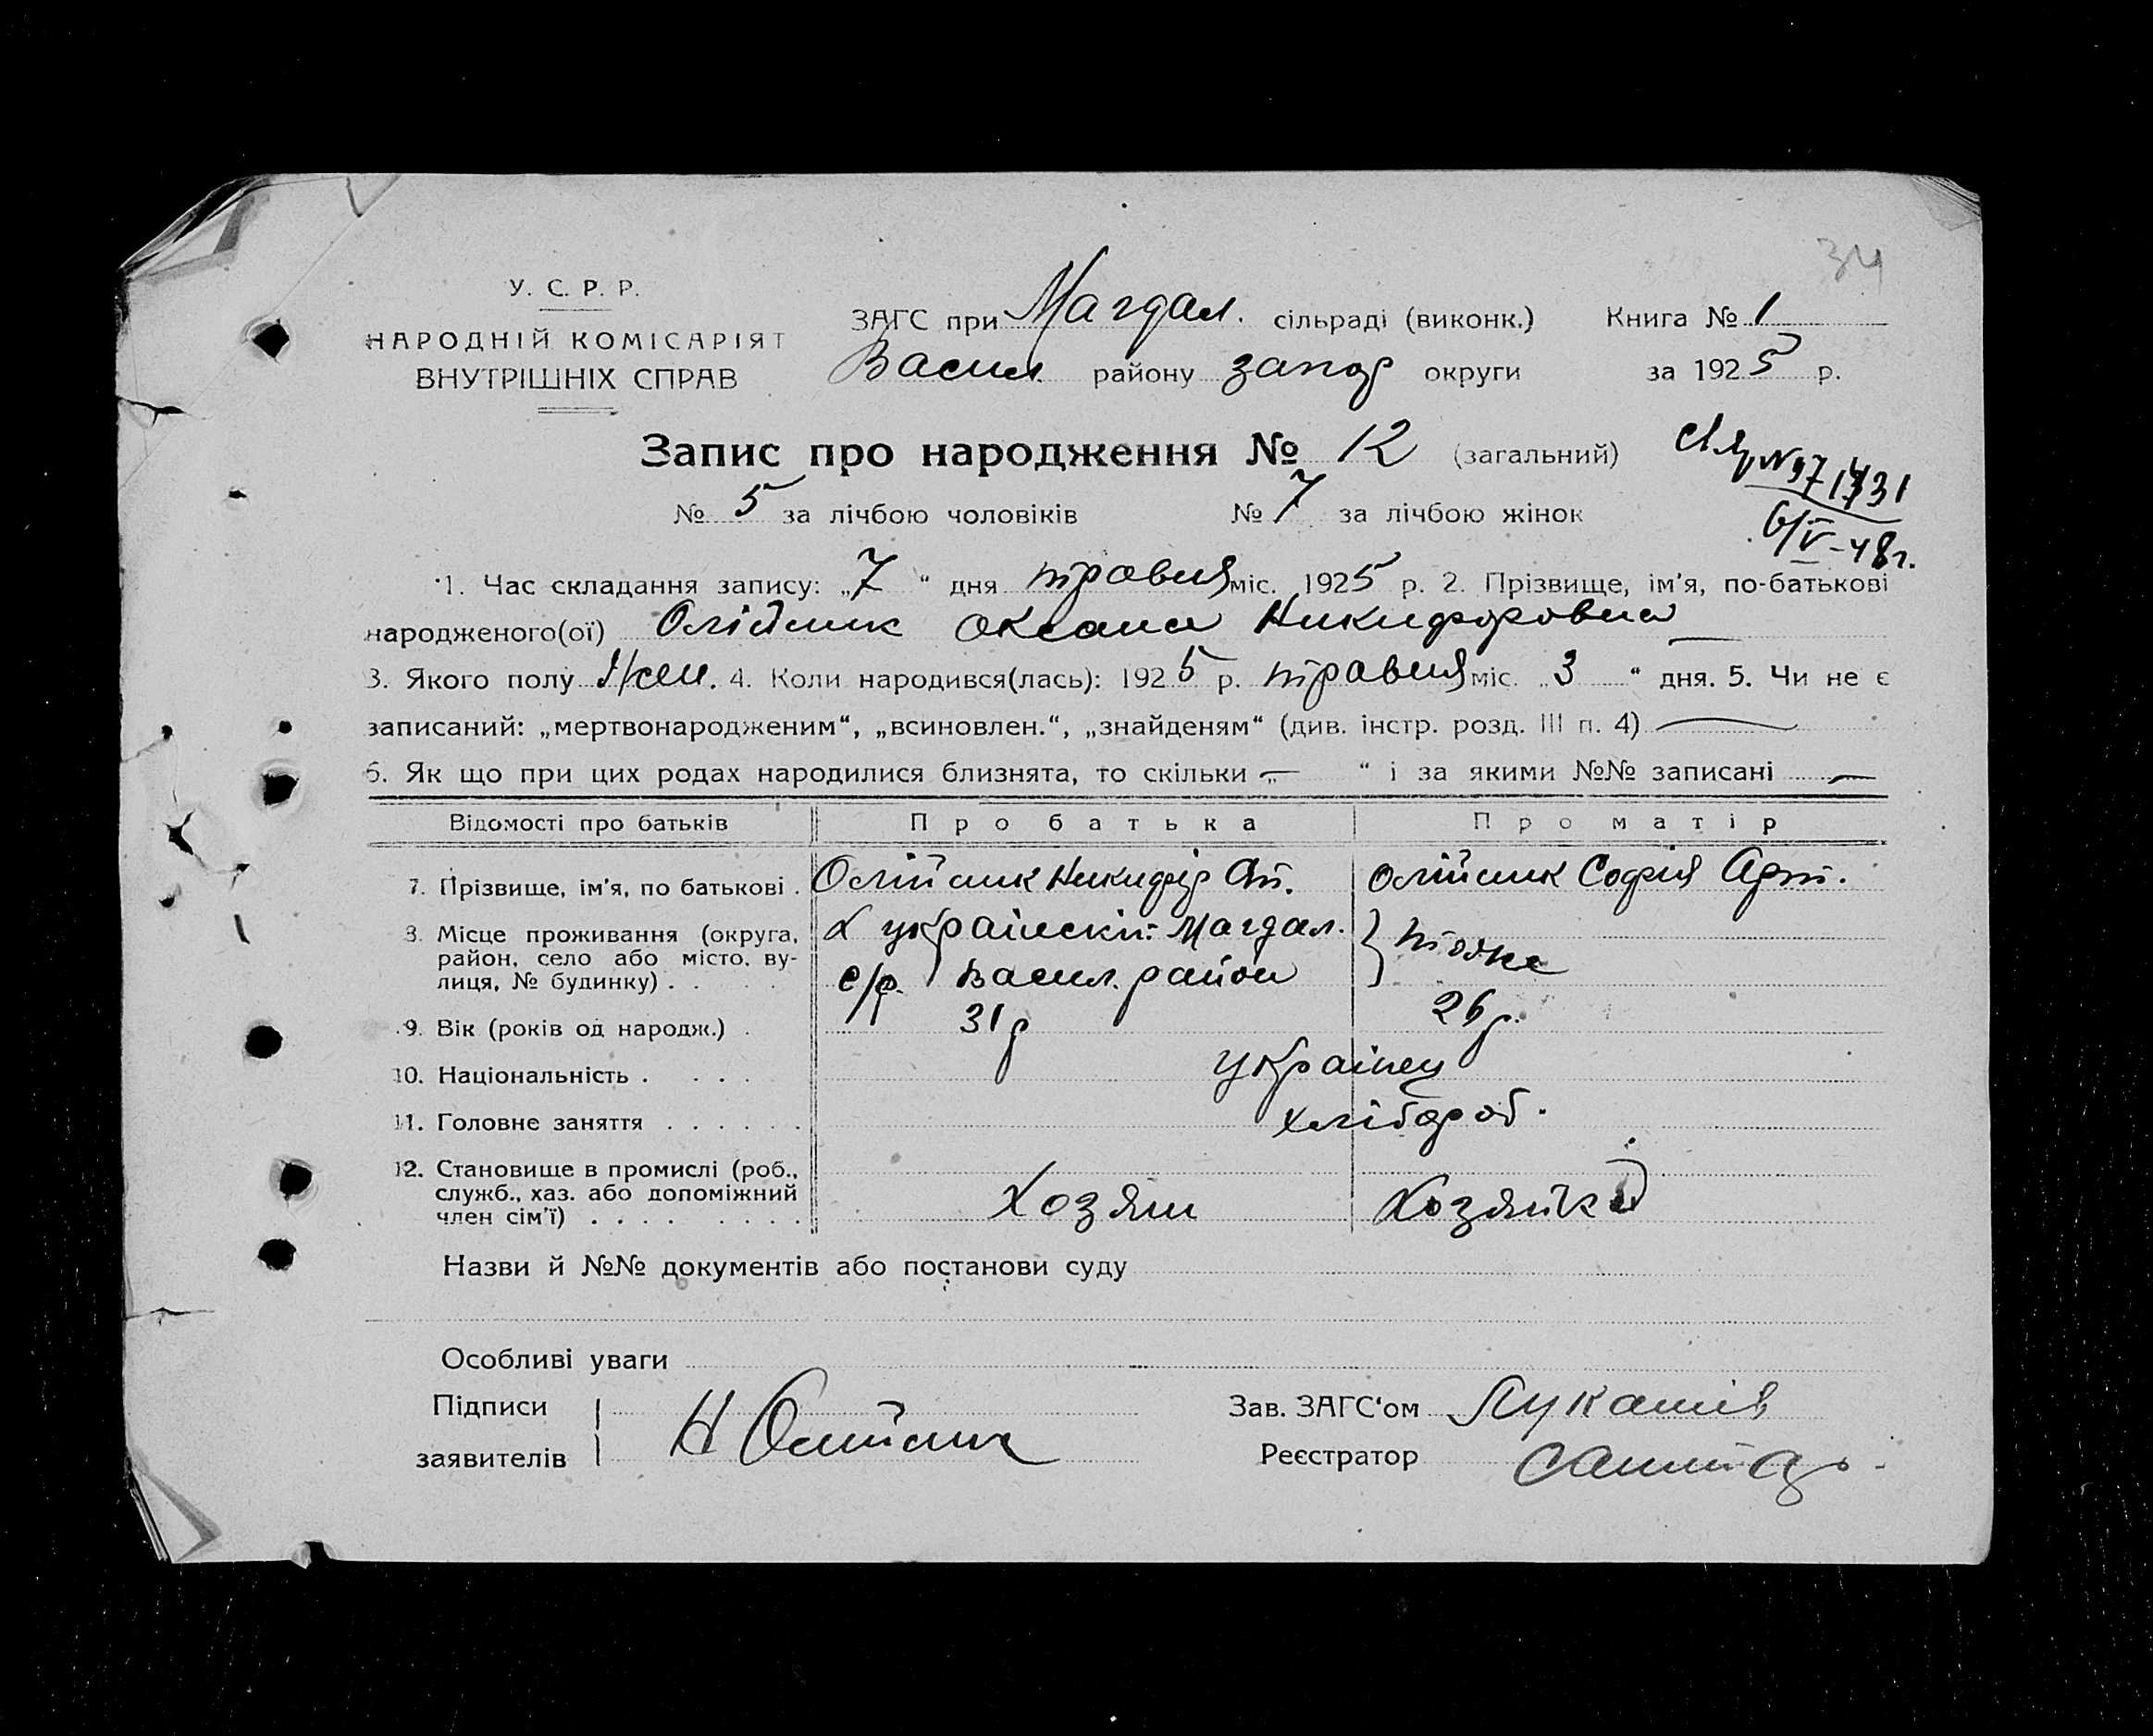 34
У. С. Р. Р.
НАРОДНІЙ КОМІСАРІЯТ
ВНУТРІШНІХ СПРАВ
ЗАГС при Магдал. сільраді (виконк.) Книга № 1
Васил. району запор округи за 1925 р.
Запис про народження № 12 (загальний)
№ 5 за лічбою чоловіків № 7 за лічбою жінок
6/V-48г.
1. Час складання запису: „7“ дня травня міс. 1925 р. 2. Прізвище, ім'я, по-батькові
народженого(ої) Олійник Оксана Никифоровна
3. Якого полу Жен. 4. Коли народився(лась): 1925 р. травня міс. „3“ дня. 5. Чи не є
записаний: „мертвонародженим“, „всиновлен.“, „знайденям“ (див. інстр. розд. III п. 4) —
6. Як що при цих родах народилися близнята, то скільки „—“ і за якими №№ записані —
Відомості про батьків Про батька Про матір
7. Прізвище, ім'я, по батькові . Олійник Никифір Ан. Олійник Софія Арт.
8. Місце проживання (округа, район, село або місто, вулиця, № будинку) . . х українскій Магдал. с/р. Васил. район тоже
9. Вік (років од народж.) . 31 р 26 р.
10. Національність . . . . українец
11. Головне заняття . . . . . . хлібороб.
12. Становище в промислі (роб., служб., хаз. або допоміжний член сім'ї) . . . . . . . . Хозяин Хозяйка
Назви й №№ документів або постанови суду
Особливі уваги
Підписи
заявителів Н Олійник
Зав. ЗАГС'ом Лукашів
Реєстратор